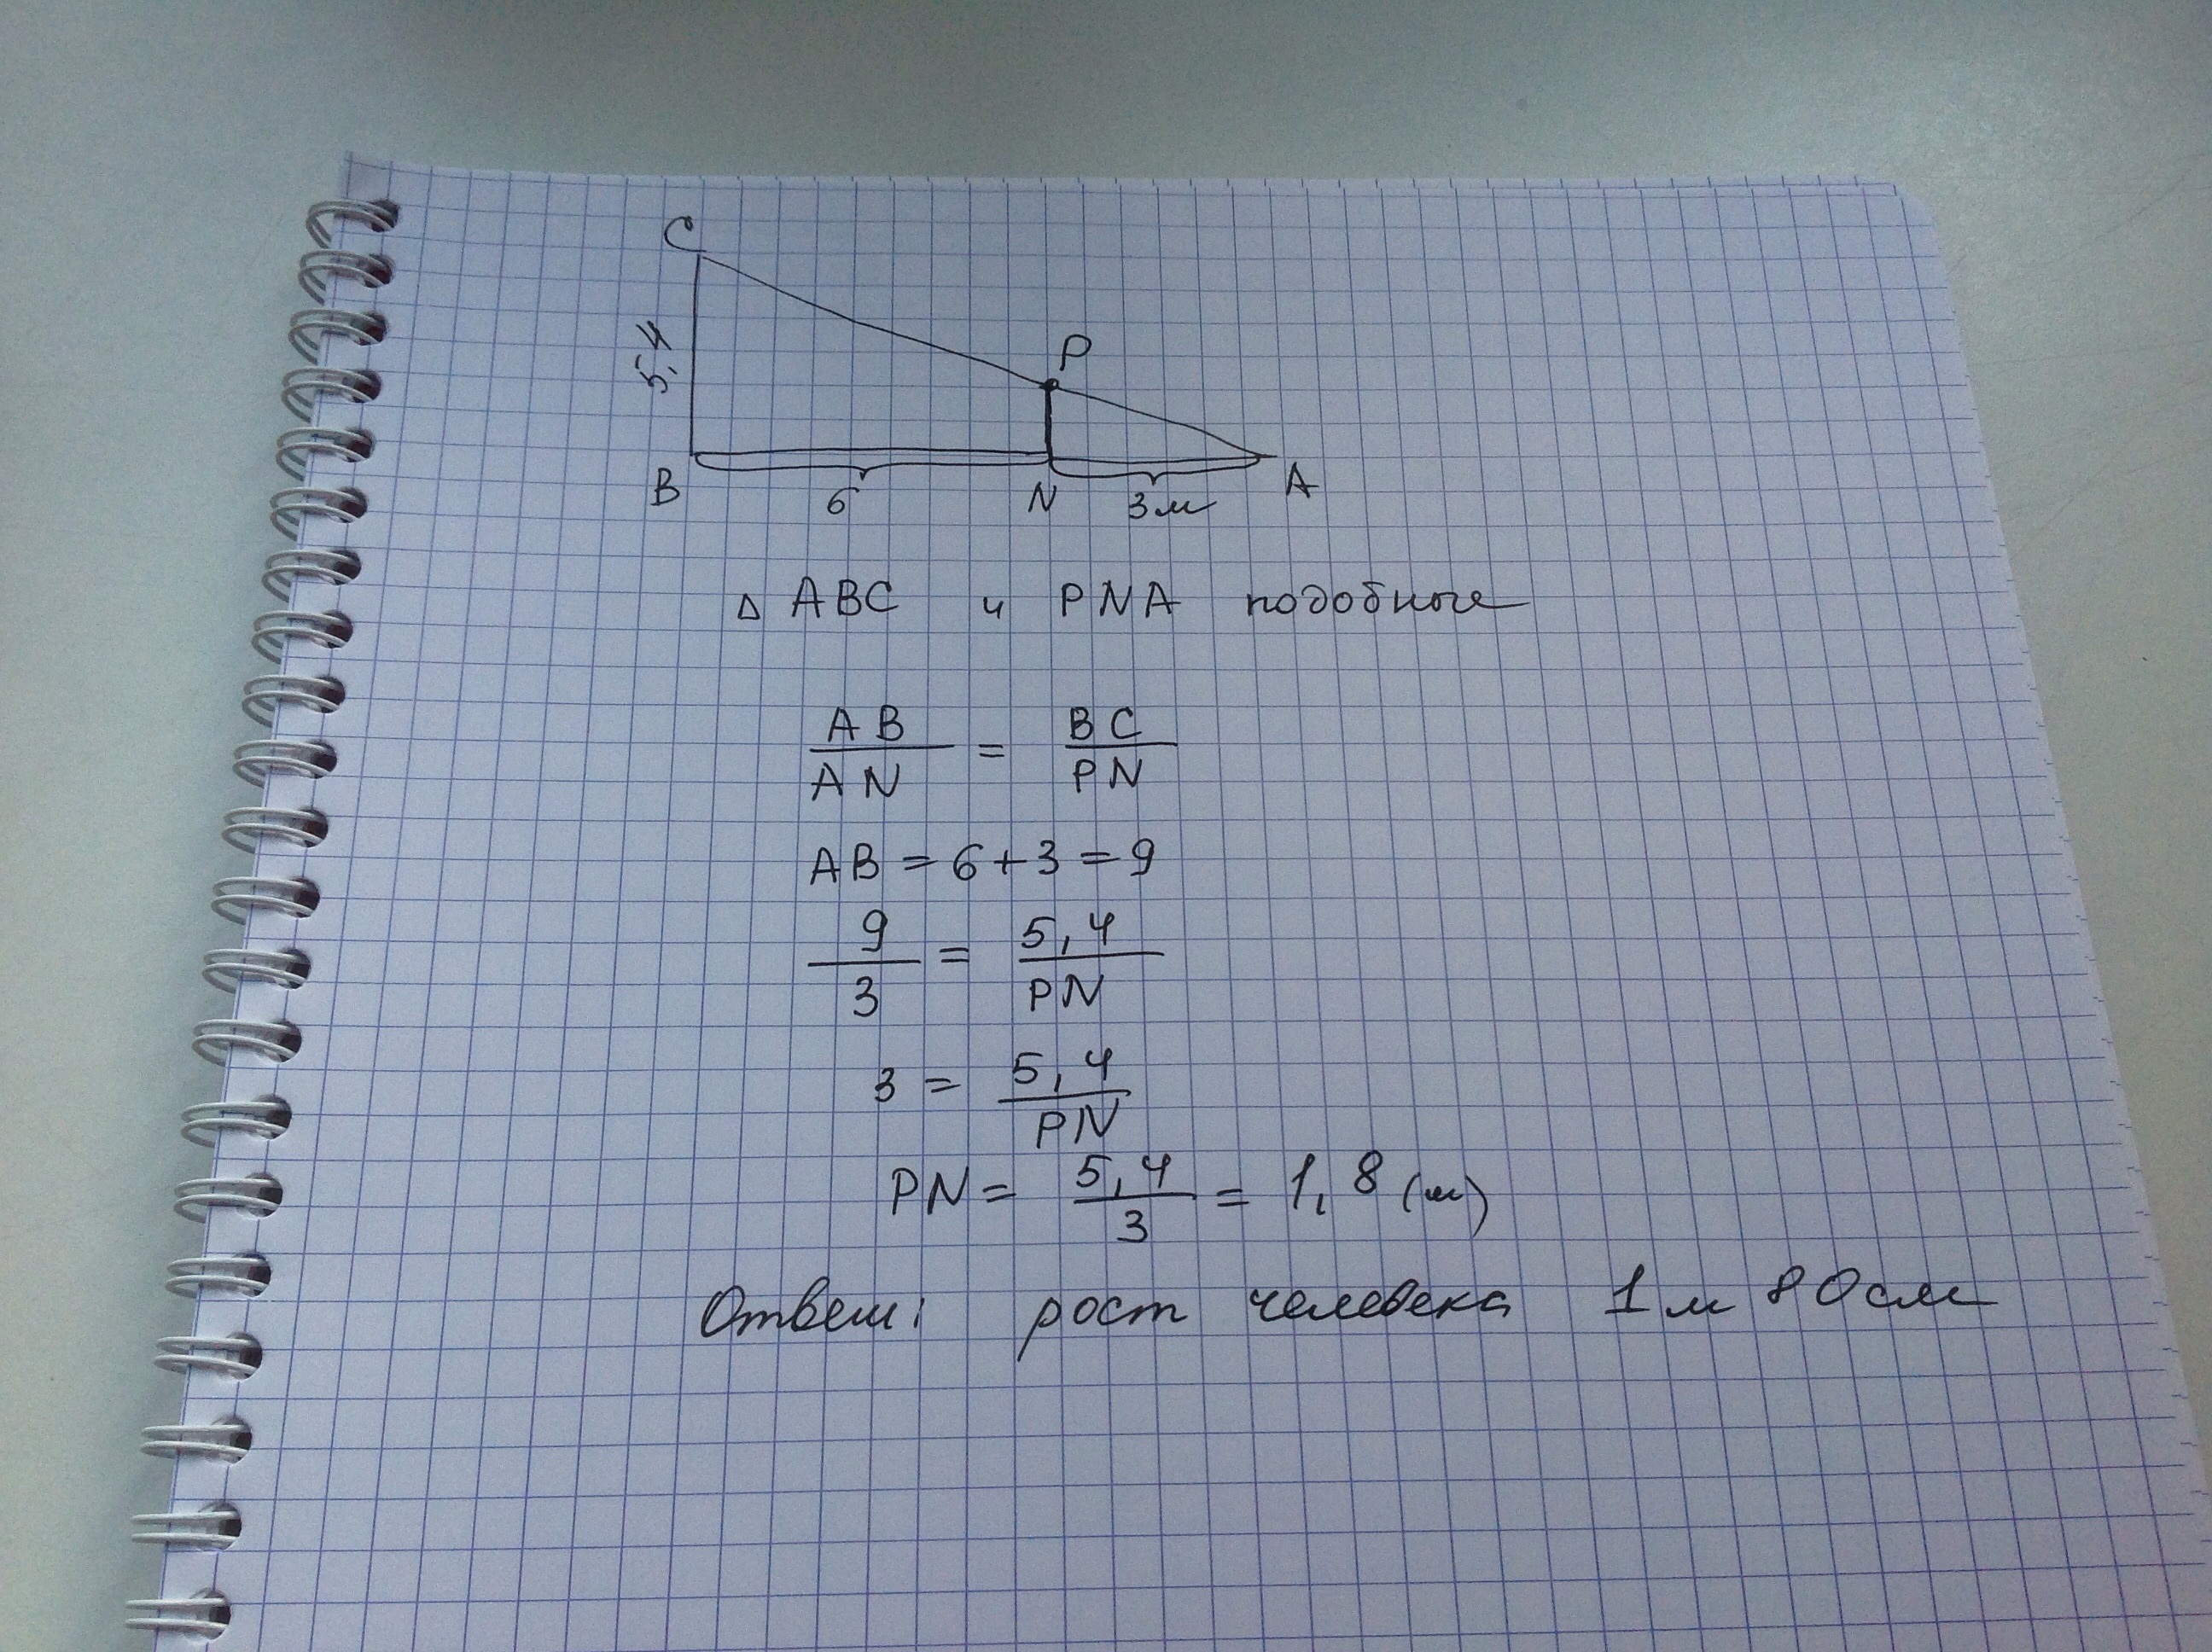 C
5,4
P
B 6 N 3м A
Δ ABC и PNA подобные
AB/AN = BC/PN
AB = 6 + 3 = 9
9/3 = 5,4/PN
3 = 5,4/PN
PN = 5,4/3 = 1,8 (м)
Ответ: рост человека 1м 80см